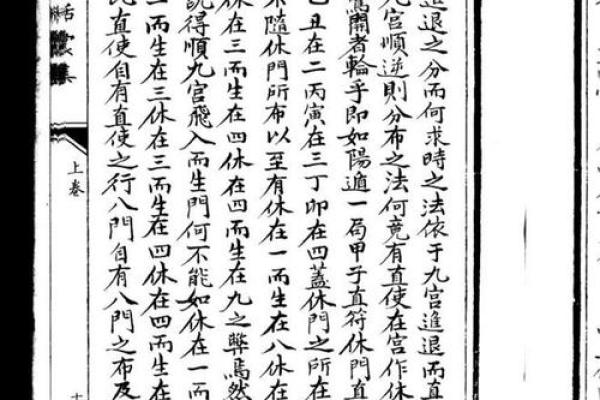 進退之分而何求時之法依于九宮進退而直
九宮順逆則分布之法何竟有直使在宮作休
開者輪乎即如陽遁一局甲子直符休門直
乙丑在二丙寅在三丁卯在四蓋休門之所在
隨休門所布以至有休在一而生在八休在
休在三而生在四休在四而生在九之弊焉然
說得順九宮飛入而生門何不能如休在一而
二而生在三休在三而生在四休在四而生在
直使自有直使之行八門自有八門之布及
上卷